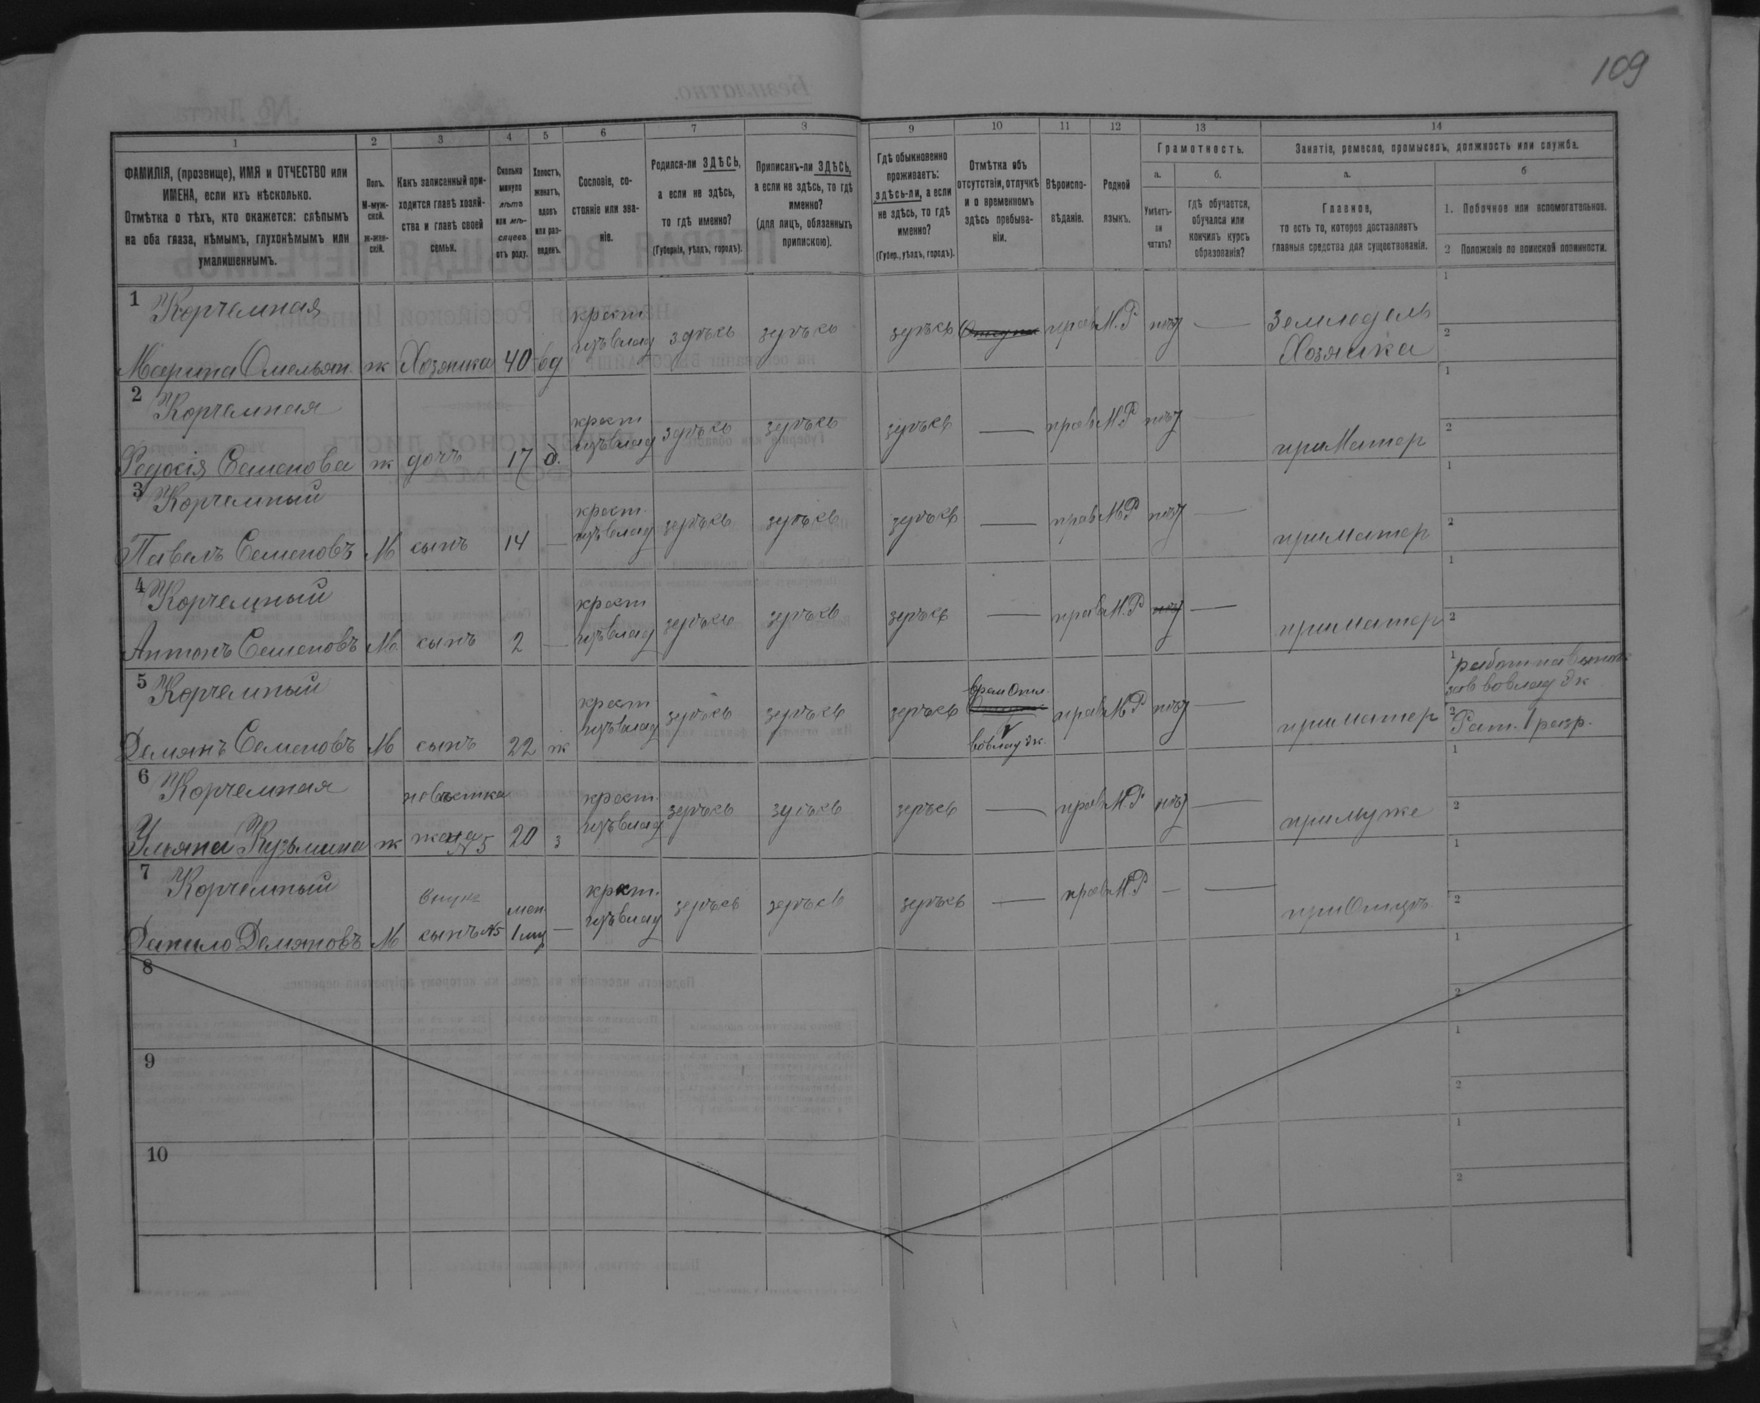 109
1 2 3 4 5 6 7 8 9 10 11 12 13 14
ФАМИЛІЯ, (прозвище), ИМЯ и ОТЧЕСТВО или
ИМЕНА, если ихъ нѣсколько.
Отмѣтка о тѣхъ, кто окажется: слѣпымъ
на оба глаза, нѣмымъ, глухонѣмымъ или
умалишеннымъ.
Полъ.
М-муж-
ской.
Ж-жен-
скій.
Какъ записанный при-
ходится главѣ хозяй-
ства и главѣ своей
семьи.
Сколько
минуло
лѣтъ
или мѣ-
сяцевъ
отъ роду.
Холостъ,
женатъ,
вдовъ
или раз-
веденъ.
Сословіе, со-
стояніе или зва-
ніе.
Родился-ли ЗДѢСЬ,
а если не здѣсь,
то гдѣ именно?
(Губернія, уѣздъ, городъ).
Приписанъ-ли ЗДѢСЬ,
а если не здѣсь, то гдѣ
именно?
(для лицъ, обязанныхъ
припискою).
Гдѣ обыкновенно
проживаетъ:
здѣсь-ли, а если
не здѣсь, то гдѣ
именно?
(Губер., уѣздъ, городъ).
Отмѣтка объ
отсутствіи, отлучкѣ
и о временномъ
здѣсь пребыва-
ніи.
Вѣроиспо-
вѣданіе.
Родной
языкъ.
Грамотность.
а.
Умѣетъ-
ли
читать?
б.
гдѣ обучается,
обучался или
кончилъ курсъ
образованія?
Занятіе, ремесло, промыселъ, должность или служба.
а.
Главное,
то есть то, которое доставляетъ
главныя средства для существованія.
б
1. Побочное или вспомогательное.
2 Положеніе по воинской повинности.
1 Корчемная крест 1
Марина Омельян ж Хозяика 40 вд изъ влад здѣсь здѣсь здѣсь прав М.Р нѣт — Земледель Хозяика 2
2 Корчемная крест 1
Федосія Семенова ж дочь 17 д. изъ влад здѣсь здѣсь здѣсь — прав М.Р нѣт — при Матер 2
3 Корчемный крест. 1
Павелъ Семеновъ М сынъ 14 — изъ влад здѣсь здѣсь здѣсь — прав М.Р нѣт — при Матер 2
4 Корчемный крест 1
Антонъ Семеновъ М сынъ 2 — изъ влад здѣсь здѣсь здѣсь — прав М.Р нѣт — при матер 2
5 Корчемный крест врем Отл. 1
Демянъ Семеновъ М сынъ 22 ж изъ влад здѣсь здѣсь здѣсь прав М.Р нѣт — при матер 2 Рат. 1 разр.
6 Корчемная невѣстка крест 1
Ульяна Кузьмина ж жена №5 20 з изъ влад здѣсь здѣсь здѣсь — прав М.Р нѣт — при муже 2
7 Корчемный Внукъ мен крест. 1
Данило Демяновъ М сынъ №5 1 мѣ — изъ влад здѣсь здѣсь здѣсь — прав М.Р — — при Отцѣ 2
8 1
2
9 1
2
10 1
2